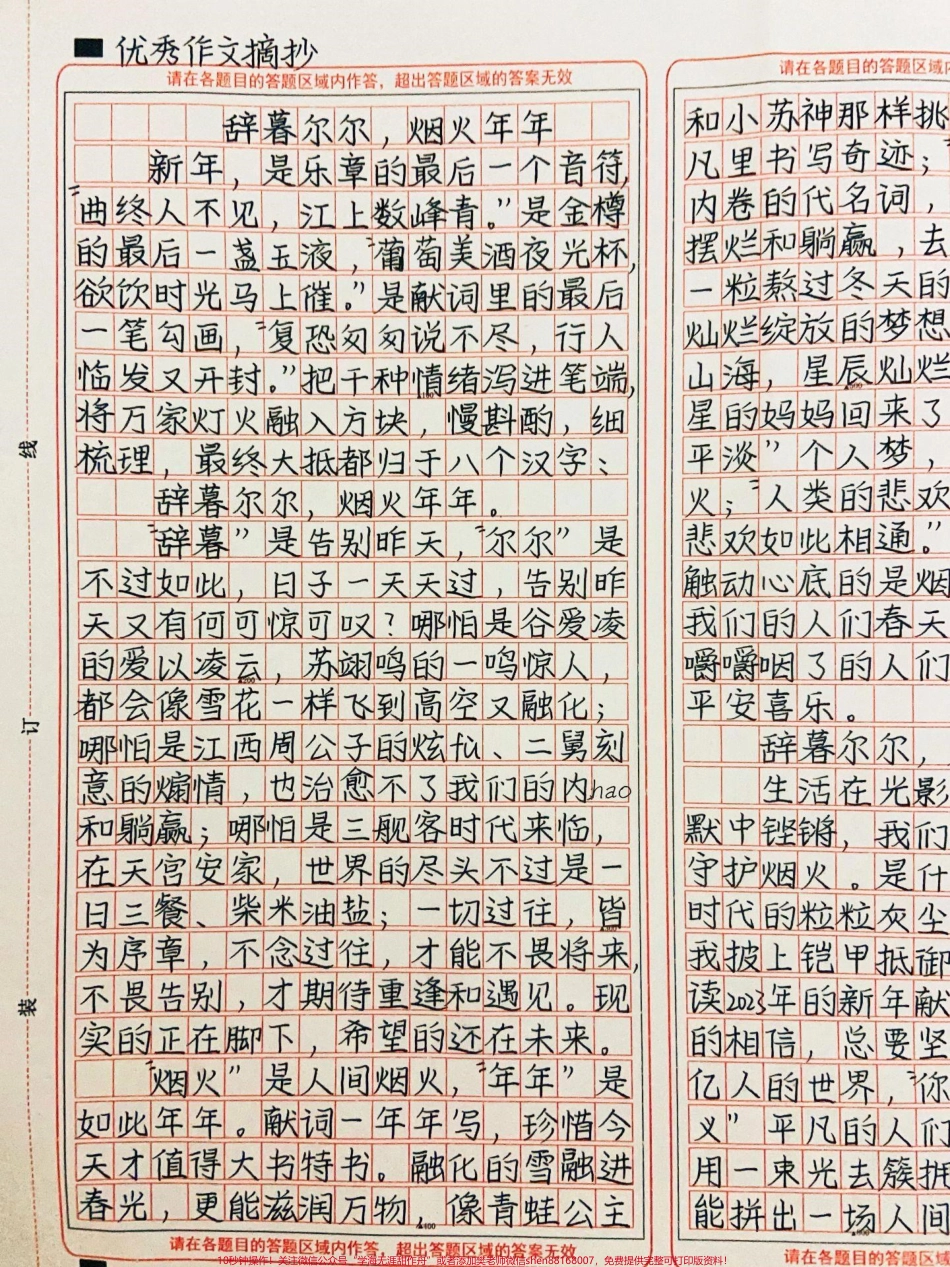 优秀作文摘抄
请在各题目的答题区域内作答，超出答题区域的答案无效
辞暮尔尔，烟火年年
新年，是乐章的最后一个音符，
“曲终人不见，江上数峰青。”是金樽
的最后一盏玉液，“葡萄美酒夜光杯，
欲饮时光马上催。”是献词里的最后
一笔勾画，“复恐匆匆说不尽，行人
临发又开封。”把千种情绪泻进笔端，
将万家灯火融入方块，慢斟酌，细
梳理，最终大抵都归于八个汉字：
辞暮尔尔，烟火年年。
“辞暮”是告别昨天，“尔尔”是
不过如此，日子一天天过，告别昨
天又有何可惊可叹？哪怕是谷爱凌
的爱以凌云，苏翊鸣的一鸣惊人，
都会像雪花一样飞到高空又融化；
哪怕是江西周公子的炫fu、二舅刻
意的煽情，也治愈不了我们的内hao
和躺赢；哪怕是三舰客时代来临，
在天宫安家，世界的尽头不过是一
日三餐、柴米油盐；一切过往，皆
为序章，不念过往，才能不畏将来，
不畏告别，才期待重逢和遇见。现
实的正在脚下，希望的还在未来。
“烟火”是人间烟火，“年年”是
如此年年。献词一年年写，珍惜今
天才值得大书特书。融化的雪融进
春光，更能滋润万物，像青蛙公主
请在各题目的答题区域内作答，超出答题区域的答案无效
请在各题目的答题区域内
和小苏神那样挑
凡里书写奇迹；“
内卷的代名词，
摆烂和躺赢，去
一粒熬过冬天的
灿烂绽放的梦想
山海，星辰灿烂
星的妈妈回来了
平淡”个人梦，
火；“人类的悲欢
悲欢如此相通。”
触动心底的是烟
我们的人们春天
嚼嚼咽了的人们
平安喜乐。
辞暮尔尔，
生活在光影
默中铿锵，我们
守护烟火。是什
时代的粒粒灰尘
我披上铠甲抵御
读2023年的新年献
的相信，总要坚
亿人的世界，“你
义”平凡的人们
用一束光去簇拥
能拼出一场人间
请在各题目的答题区域
线
订
装